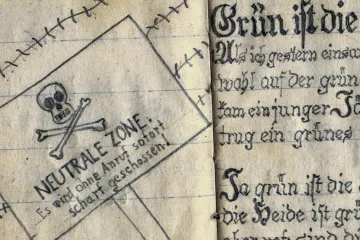 NEUTRALE ZONE.
Es wird ohne Anruf sofort
scharf geschossen!
Grün ist die
Als ich gestern einsa
wohl auf der grün
kam ein junger Jä
trug ein grünes
Ja grün ist die
die Heide ist grü